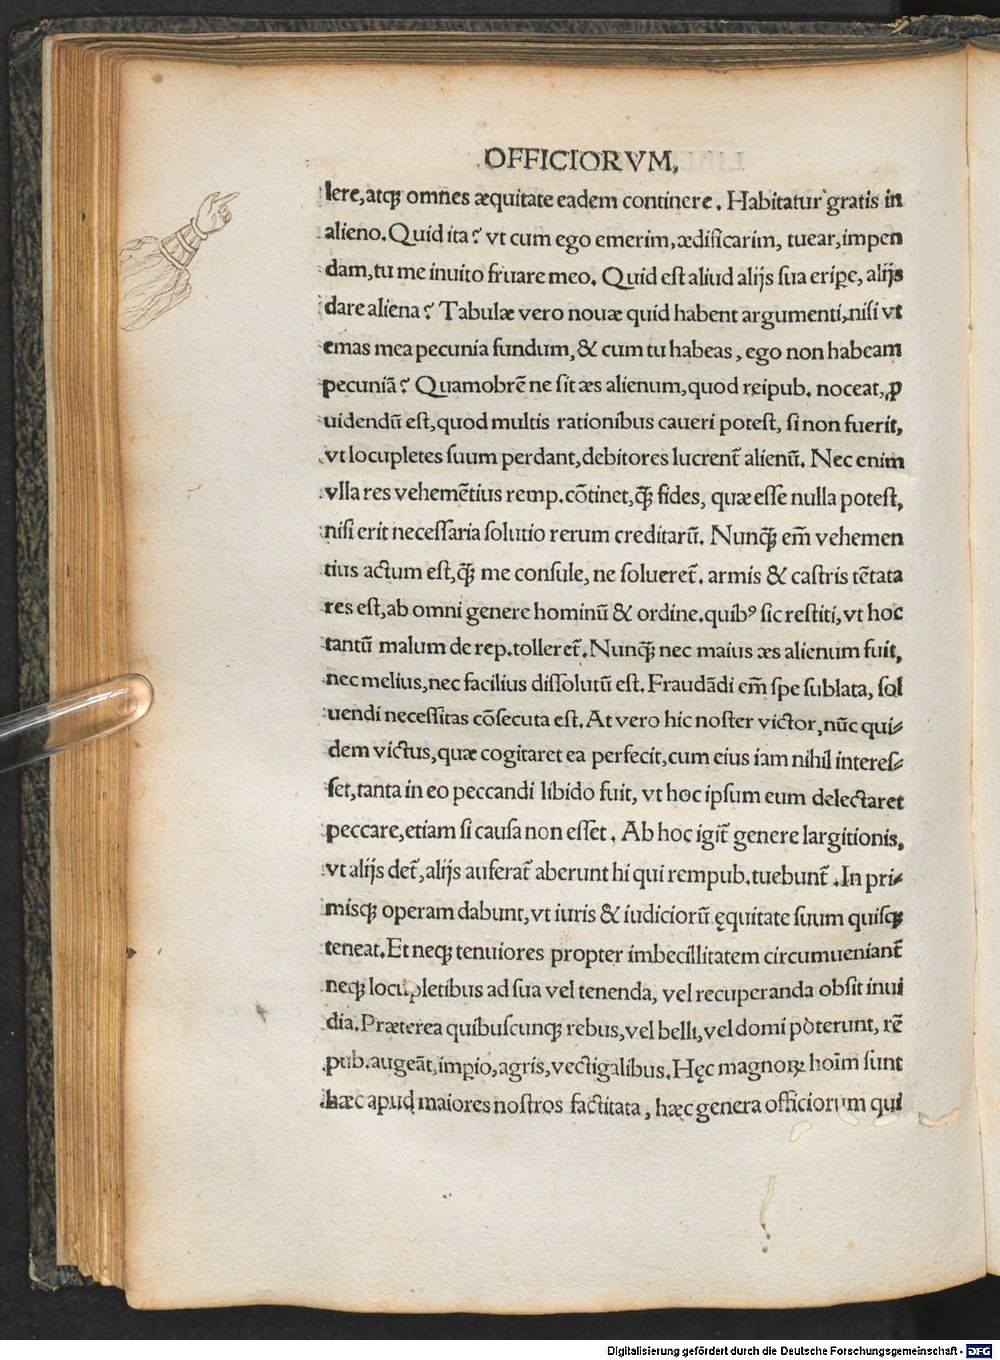 OFFICIORVM,
lere,atqꝫ omnes æquitate eadem continere. Habitatur gratis in
alieno. Quid ita? vt cum ego emerim,ædificarim, tuear,impen
dam,tu me inuito fruare meo. Quid est aliud alijs sua eriꝑe, alijs
dare aliena? Tabulæ vero nouæ quid habent argumenti,nisi vt
emas mea pecunia fundum, & cum tu habeas, ego non habeam
pecuniā? Quamobrē ne sit æs alienum,quod reipub. noceat, ꝓ
uidendū est,quod multis rationibus caueri potest, si non fuerit,
vt locupletes suum perdant,debitores lucrent̄ alienū. Nec enim
vlla res vehemētius remp.cōtinet,q̄ꝫ fides, quæ esse nulla potest,
nisi erit necessaria solutio rerum creditarū. Nunq̄ꝫ em̄ vehemen
tius actum est,q̄ꝫ me consule, ne solueret̄. armis & castris tētata
res est,ab omni genere hominū & ordine.quibꝰ sic restiti, vt hoc
tantū malum de rep.tolleret̄. Nunq̄ꝫ nec maius æs alienum fuit,
nec melius,nec facilius dissolutū est. Fraudādi em̄ spe sublata, sol
uendi necessitas cōsecuta est. At vero hic noster victor,nūc qui-
dem victus,quæ cogitaret ea perfecit,cum eius iam nihil interes-
set,tanta in eo peccandi libido fuit, vt hoc ipsum eum delectaret
peccare,etiam si causa non esset. Ab hoc igit̄ genere largitionis,
vt alijs det̄,alijs auferat̄ aberunt hi qui rempub.tuebunt̄. In pri-
misqꝫ operam dabunt,vt iuris & iudiciorū ęquitate suum quisqꝫ
teneat. Et neqꝫ tenuiores propter imbecillitatem circumueniant̄
neqꝫ locupletibus ad sua vel tenenda, vel recuperanda obsit inui
dia. Præterea quibuscunqꝫ rebus,vel belli,vel domi poterunt, rē
pub.augeāt,imꝑio,agris,vectigalibus. Hęc magnoꝝ hoīm sunt
hæc apud maiores nostros factitata, hæc genera officiorum qui
Digitalisierung gefördert durch die Deutsche Forschungsgemeinschaft - DFG